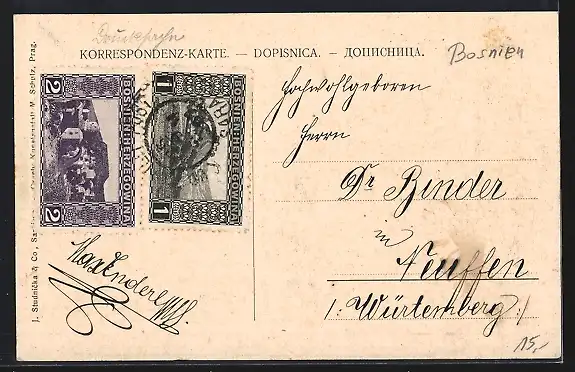 KORRESPONDENZ-KARTE. — DOPISNICA. — ДОПИСНИЦА.
Bosnien
2
BOSNIEN HERZEGOWINA
2
1
BOSNIEN HERZEGOWINA
1
J. Studnička & Co.,
M. Schulz, Prag.
Hochwohlgeboren
Herrn
Dr Binder
in
Neuffen
/: Württemberg :/
15,-